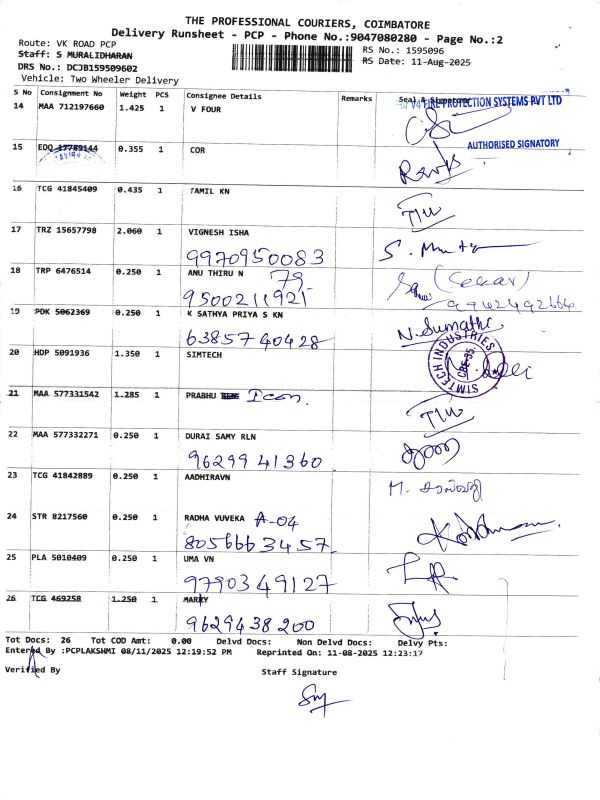 THE PROFESSIONAL COURIERS, COIMBATORE
Delivery Runsheet - PCP - Phone No.:9047080280 - Page No.:2
Route: VK ROAD PCP
Staff: S MURALIDHARAN
RS No.: 1595096
DRS No.: DCJB159509602
RS Date: 11-Aug-2025
Vehicle: Two Wheeler Delivery
S No Consignment No Weight PCS Consignee Details Remarks Seal & Signature
14 MAA 712197660 1.425 1 V FOUR
V4 FIRE PROTECTION SYSTEMS PVT LTD
AUTHORISED SIGNATORY
15 EDQ 17789144 0.355 1 COR
16 TCG 41845409 0.435 1 TAMIL KN
17 TRZ 15657798 2.060 1 VIGNESH ISHA
9970950083
18 TRP 6476514 0.250 1 ANU THIRU N 79
9500211921 (Sekar)
19 PDK 5062369 0.250 1 K SATHYA PRIYA S KN
6385740428 N. Sumathi
20 HDP 5091936 1.350 1 SIMTECH
SIMTECH INDUSTRIES CBE-35
21 MAA 577331542 1.285 1 PRABHU Icon
22 MAA 577332271 0.250 1 DURAI SAMY RLN
9629941360
23 TCG 41842889 0.250 1 AADHIRAVN
24 STR 8217560 0.250 1 RADHA VUVEKA A-04
8056663457
25 PLA 5010409 0.250 1 UMA VN
9790349127
26 TCG 469258 1.250 1 MARRY
9629438200
Tot Docs: 26 Tot COD Amt: 0.00 Delvd Docs: Non Delvd Docs: Delvy Pts:
Entered By :PCPLAKSHMI 08/11/2025 12:19:52 PM Reprinted On: 11-08-2025 12:23:17
Verified By Staff Signature